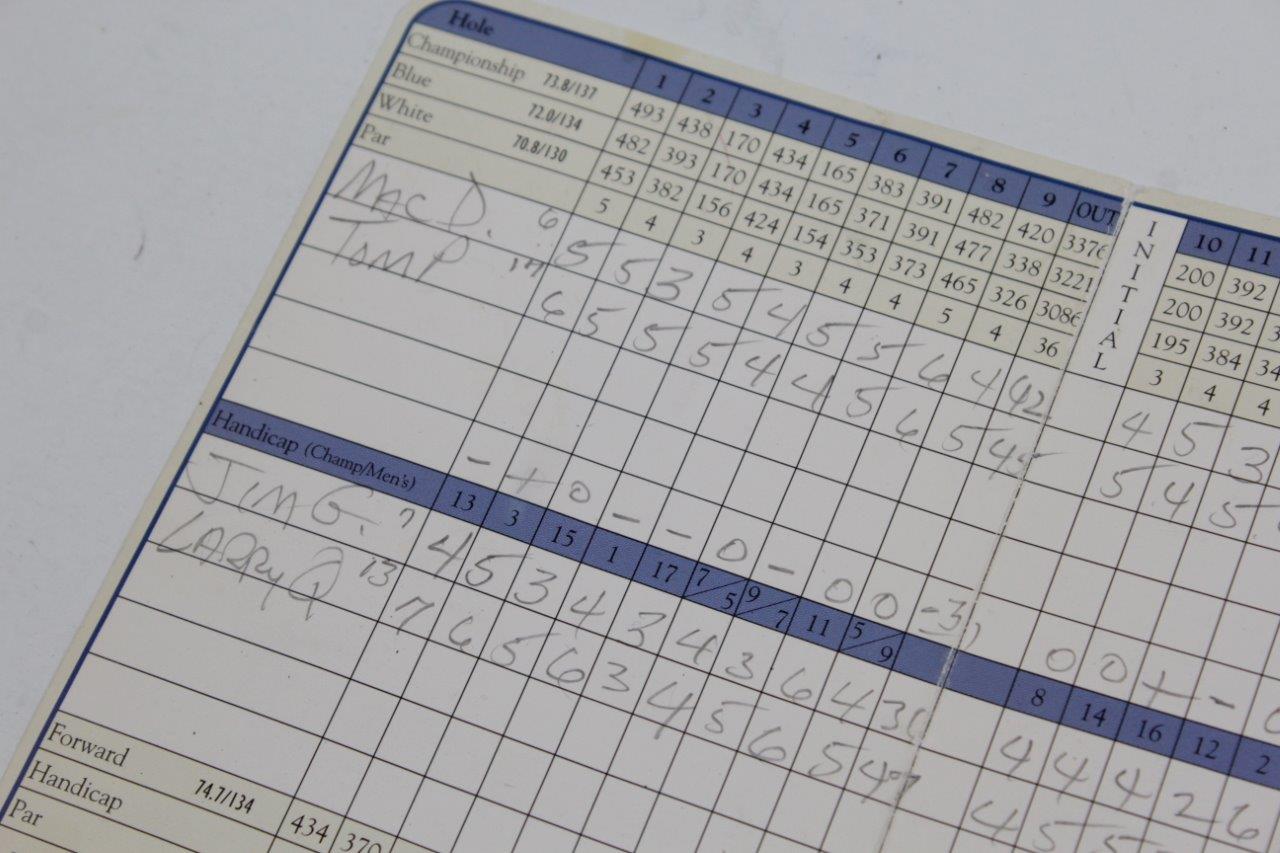 Hole 1 2 3 4 5 6 7 8 9 OUT INITIAL 10 11
Championship 73.8/137 493 438 170 434 165 383 391 482 420 3376 200 392
Blue 72.0/134 482 393 170 434 165 371 391 477 338 3221 200 392
White 70.8/130 453 382 156 424 154 353 373 465 326 3086 195 384 34
Par 5 4 3 4 3 4 4 5 4 36 3 4 4
MAC D. 6 5 5 3 5 4 5 5 6 4 42 4 5 3
TOM P 17 6 5 5 5 4 4 5 6 5 45 5 4 5
- + 0 - - 0 - 0 0 -3 0 0 + -
Handicap (Champ/Men's) 13 3 15 1 17 7/5 9/7 11 5/9 8 14 16 12 2
JIM G. 7 4 5 3 4 3 4 3 6 4 36 4 4 4 2 6
LARRY Q 13 7 6 5 6 3 4 5 6 5 47 4 5 5
Forward 74.7/134 434 370
Handicap
Par